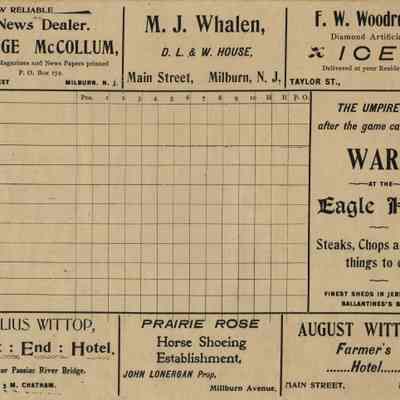 RELIABLE
News Dealer.
McCOLLUM,
Magazines and News Papers printed
P. O. Box 172.
MILBURN, N. J.
M. J. Whalen,
D. L. & W. HOUSE,
Main Street, Milburn, N. J,
F. W.
Diamond
ICE
Delivered at your
TAYLOR ST.,
Pos. 1 2 3 4 5 6 7 8 9 10 H R P. O.
THE UMPIRE
after the game
WAR
AT THE
Eagle
Steaks, Chops
things to
FINEST SHEDS IN
BALLANTINE'S
WITTOP,
: End : Hotel,
Passaic River Bridge.
M. CHATHAM.
PRAIRIE ROSE
Horse Shoeing
Establishment,
JOHN LONERGAN Prop,
Millburn Avenue,
AUGUST
Farmer's
.......Hotel.......
MAIN STREET,